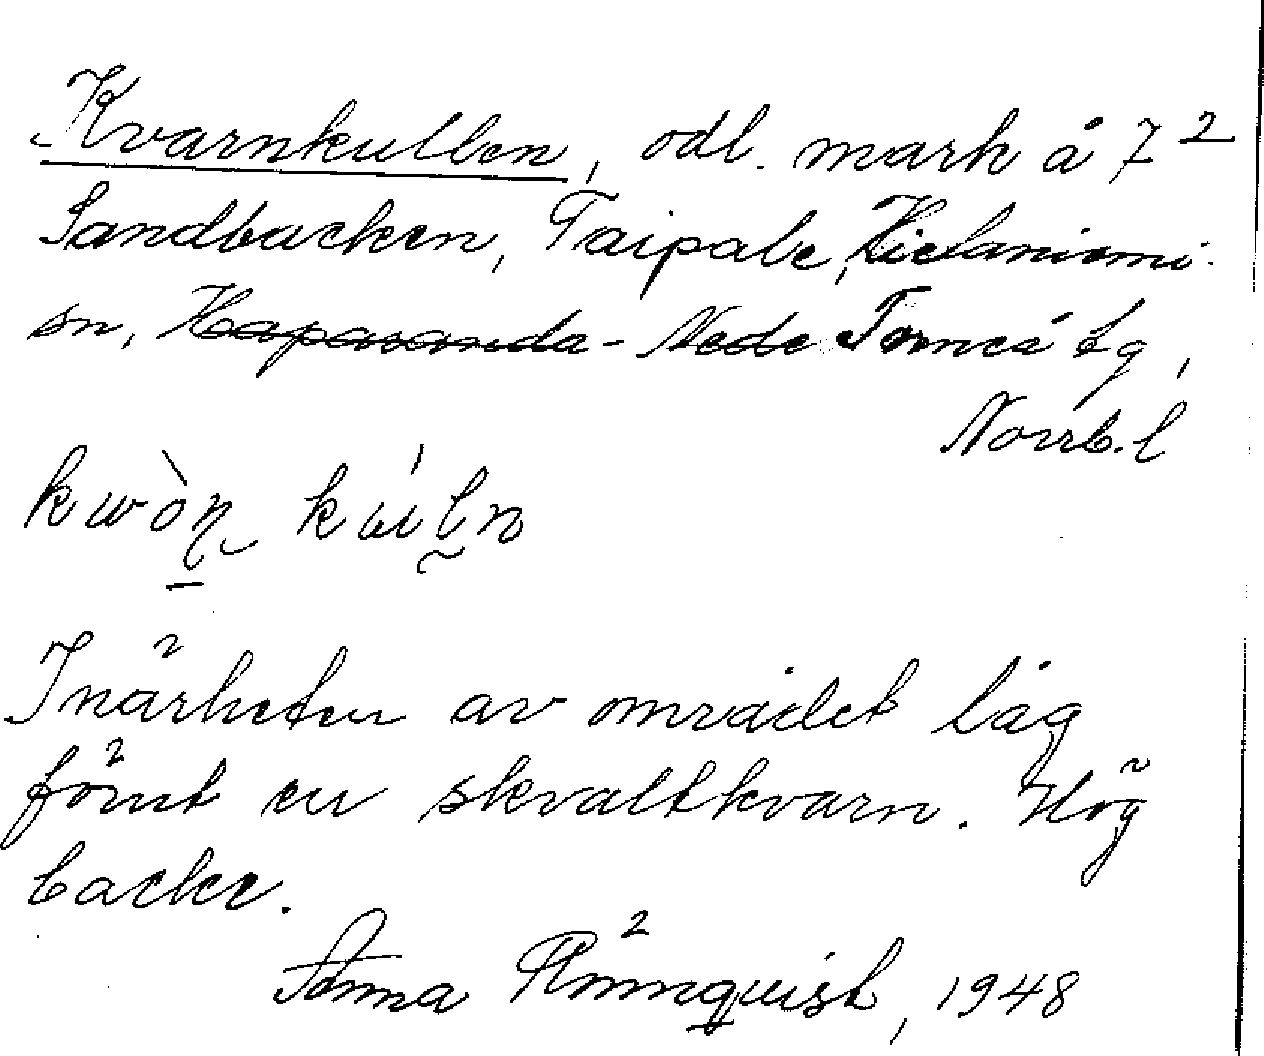 Kvarnkullen, odl. mark å 7²
Sandbacken, Taipale,
sn, Haparanda - Neder Torneå tg,
Norrb. l
kwòn kúln
I närheten av området låg
förut en skvaltkvarn. Hög
backe.
Anna Rönnquist, 1948